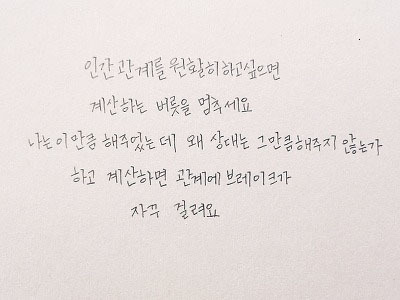 인간관계를 원활히하고싶으면
계산하는 버릇을 멈추세요
나는 이만큼 해주었는데 왜 상대는 그만큼해주지 않는가
하고 계산하면 관계에 브레이크가
자꾸 걸려요